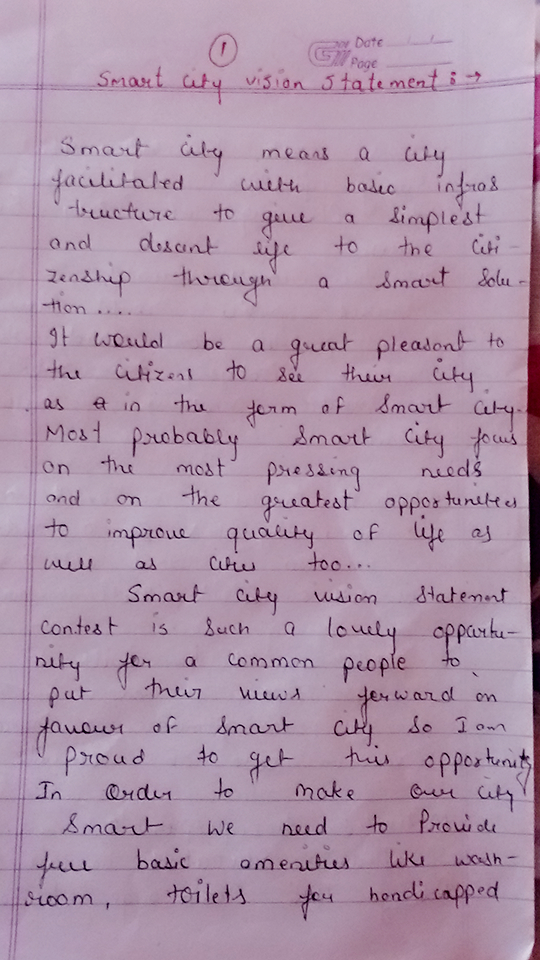 1
Date
Page
Smart city vision Statement :→
Smart city means a city
facilitated with basic infras
tructure to give a simplest
and descent life to the citi-
zenship through a smart solu-
tion....
It would be a great pleasant to
the citizens to see their city
as in the form of Smart city.
Most probably Smart city focus
on the most pressing needs
and on the greatest opportunities
to improve quality of life as
well as cities too...
Smart city vision statement
contest is such a lovely opportu-
nity for a common people to
put their views forward on
favour of Smart city so I am
proud to get this opportunity
In order to make our city
Smart we need to Provide
free basic amenities like wash-
room, toilets for handicapped